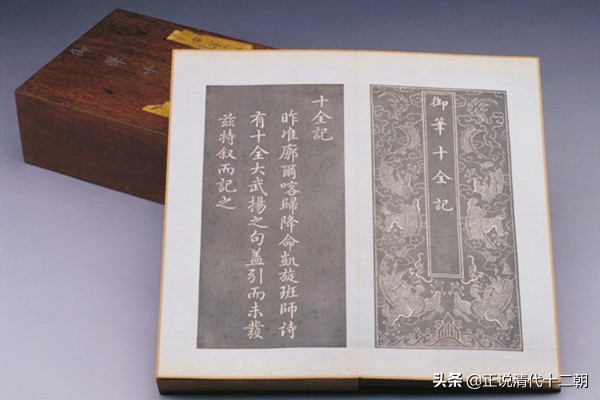 御筆十全記
十全記
昨准廓爾喀歸降命凱旋班師詩
有十全大武揚之句蓋引而未發
兹特叙而記之
头条 @正说清代十二朝